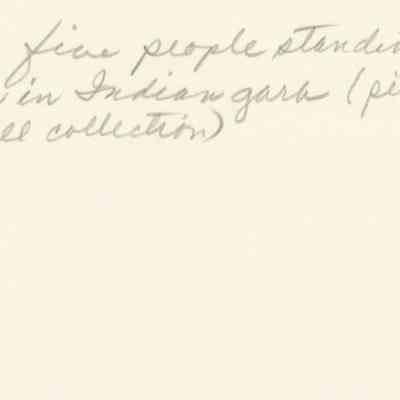 five people standin
in Indian garb (pi
ll collection)